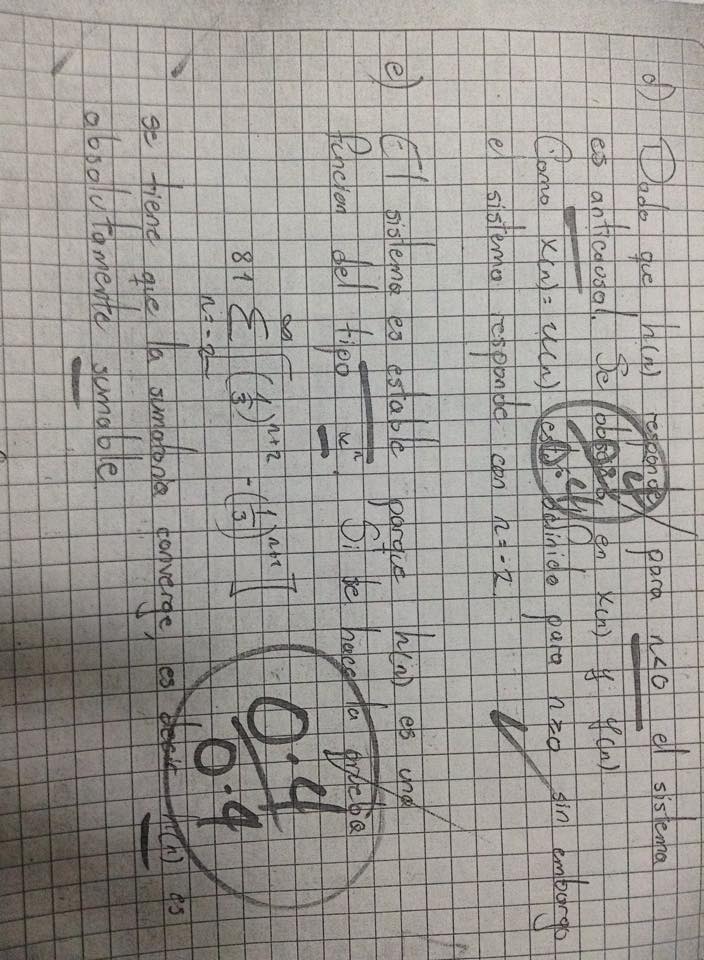 d) Dado que h(n) responde para n<0 el sistema
es anticausal. Se observa en x(n) y y(n)
Como x(n) = u(n) está definido para n≥0 sin embargo
el sistema responde con n=-2.
e) El sistema es estable porque h(n) es una
función del tipo αⁿ. Si se hace la prueba
81 ∑ [(1/3)ⁿ⁺² - (1/3)ⁿ⁺¹]
∞
n=-2
0.4
0.4
se tiene que la sumatoria converge, es decir h(n) es
absolutamente sumable.